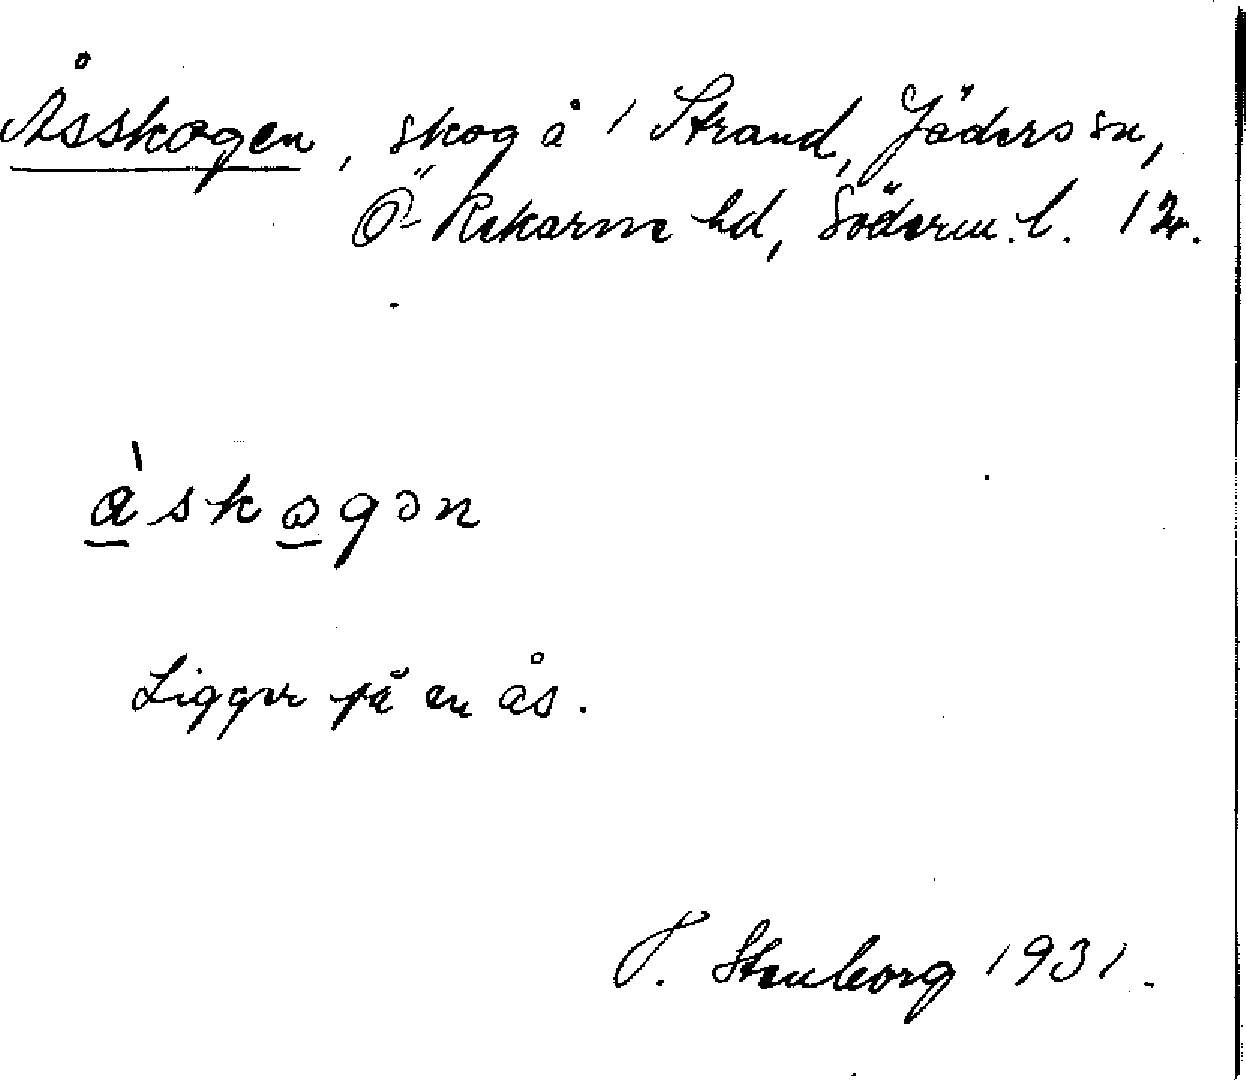 Åsskogen, skog å 1 Strand, Jäders sn,
Ö-Rekarne hd, Söderm. l. 12.
å̀skogən
Ligger på en ås.
T. Stenborg 1931.